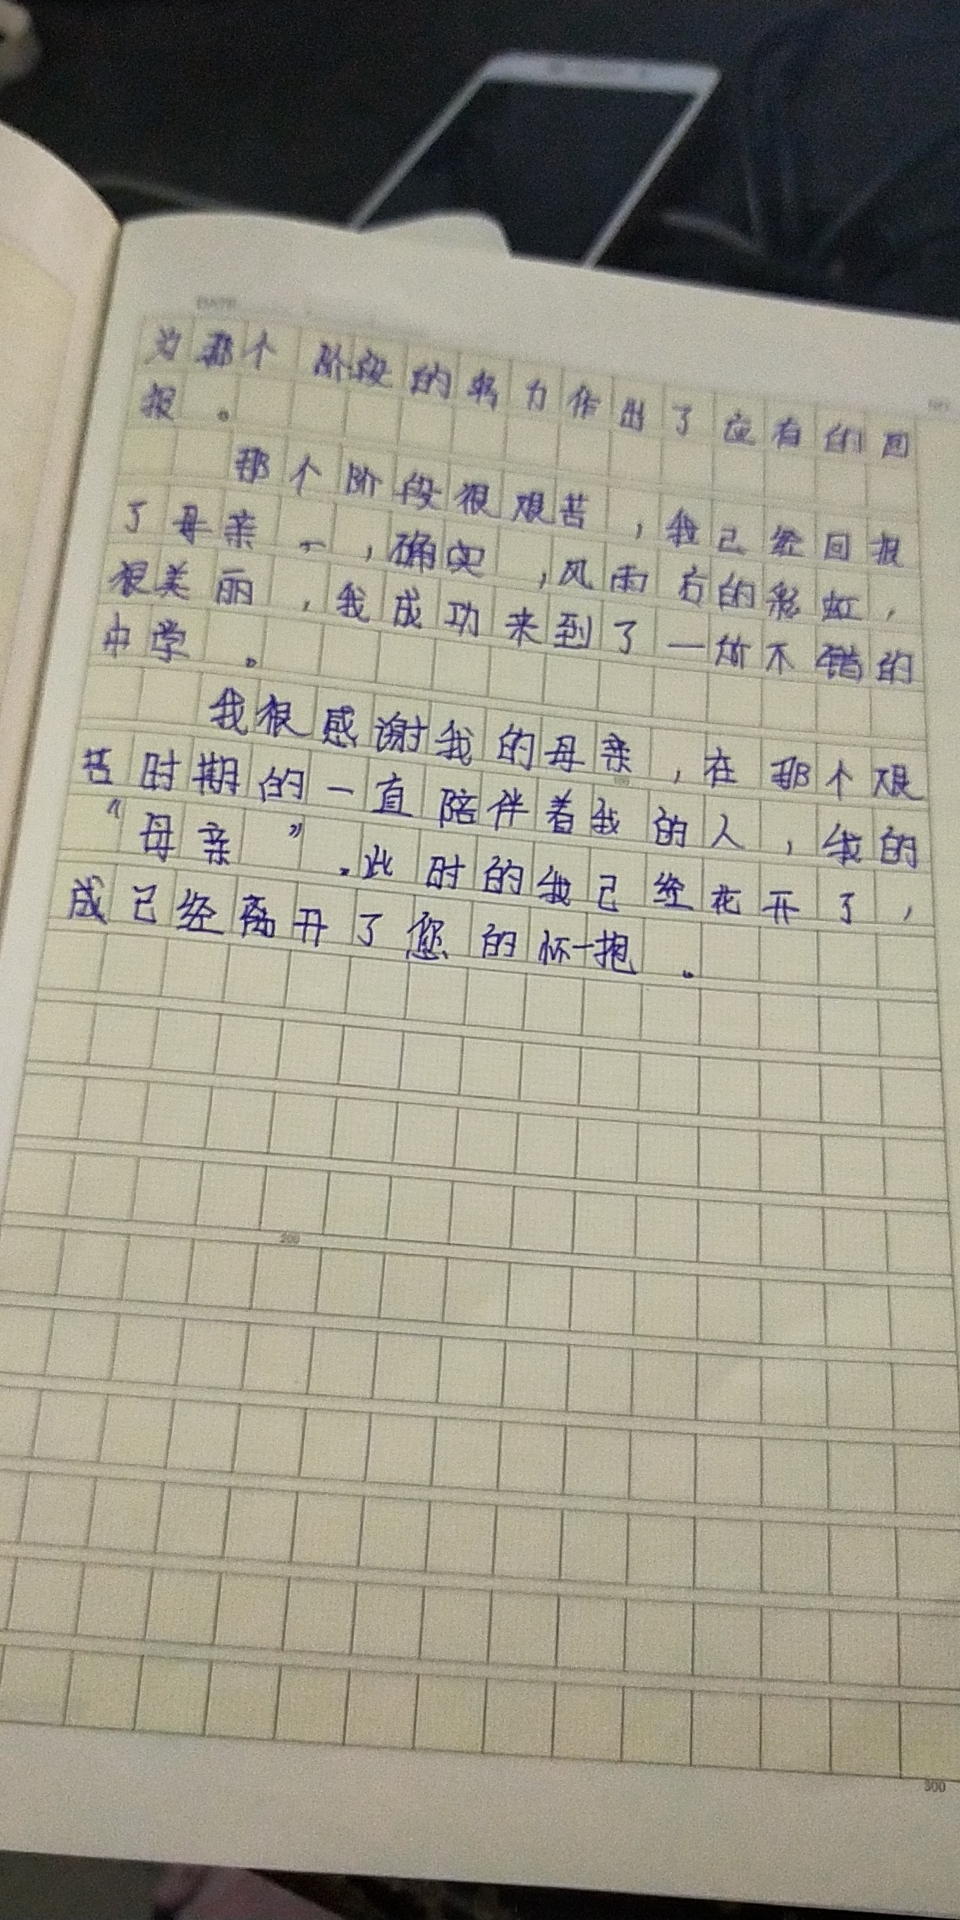 DATE
为那个阶段的努力作出了应有的回
报。
那个阶段很艰苦，我已经回报
了母亲，确实，风雨后的彩虹，
很美丽，我成功来到了一所不错的
中学。
我很感谢我的母亲，在那个艰
苦时期的一直陪伴着我的人，我的
“母亲”.此时的我已经花开了，
成已经离开了您的怀抱。
200
300